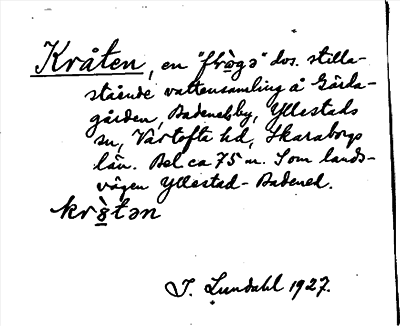 Kråten, en "frȯgə" dvs. stilla-
stående vattensamling å Gärda-
gården, Badeneby, Yllestads
sn, Vartofta hd, Skaraborgs
län. Bel. ca 75 m. S om lands-
vägen Yllestad-Badened.
krȯ̀tən
J. Lundahl 1927.